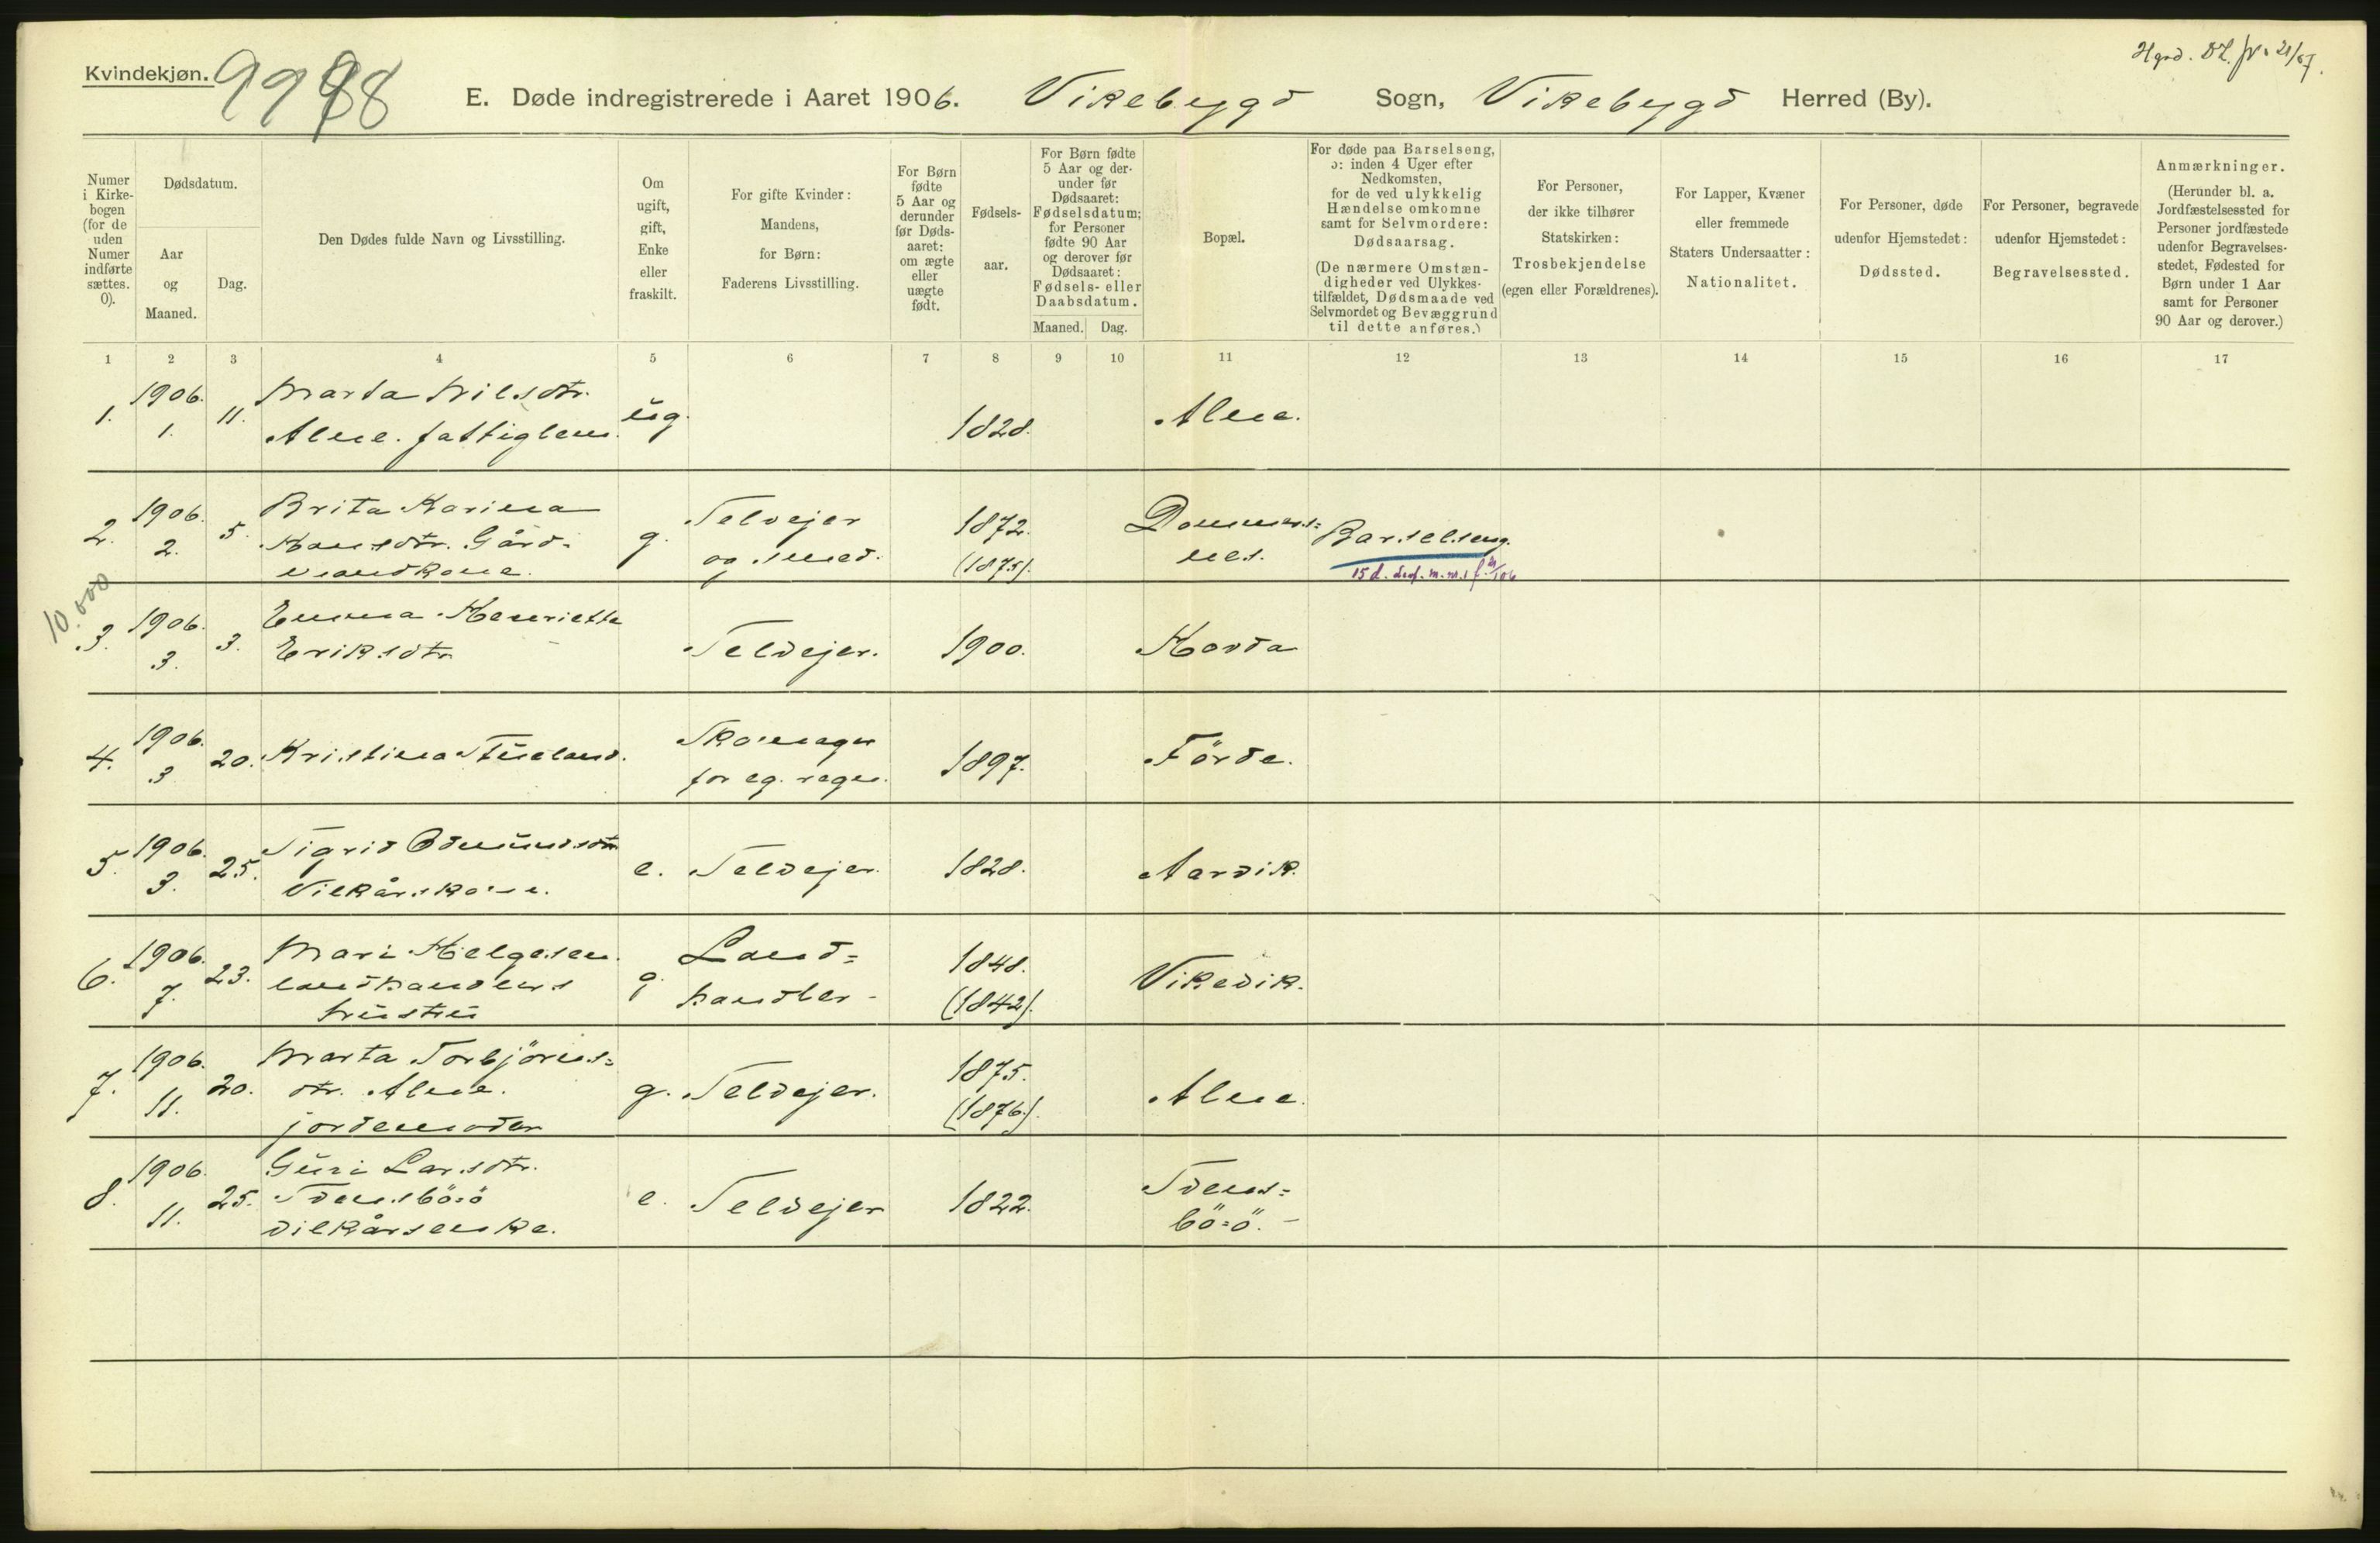 Kvindekjøn.
9988
Hgsd.
E. Døde indregistrerede i Aaret 1906. Vikebygd Sogn, Vikebygd Herred (By).
Numer i Kirke-bogen (for de uden Numer indførte sættes. 0).
Dødsdatum.
Aar og Maaned.
Dag.
Den Dødes fulde Navn og Livsstilling.
Om ugift, gift, Enke eller fraskilt.
For gifte Kvinder: Mandens, for Børn: Faderens Livsstilling.
For Børn fødte 5 Aar og derunder før Døds-aaret: om ægte eller uægte født.
Fødsels-aar.
For Børn fødte 5 Aar og der-under før Dødsaaret: Fødselsdatum; for Personer fødte 90 Aar og derover før Dødsaaret: Fødsels- eller Daabsdatum.
Maaned. Dag.
Bopæl.
For døde paa Barselseng, ɔ: inden 4 Uger efter Nedkomsten, for de ved ulykkelig Hændelse omkomne samt for Selvmordere: Dødsaarsag.
(De nærmere Omstæn-digheder ved Ulykkes-tilfældet, Dødsmaade ved Selvmordet og Bevæggrund til dette anføres.)
For Personer, der ikke tilhører Statskirken: Trosbekjendelse (egen eller Forældrenes).
For Lapper, Kvæner eller fremmede Staters Undersaatter: Nationalitet.
For Personer, døde udenfor Hjemstedet: Dødssted.
For Personer, begravede udenfor Hjemstedet: Begravelsessted.
Anmærkninger.
(Herunder bl. a. Jordfæstelsessted for Personer jordfæstede udenfor Begravelses-stedet, Fødested for Børn under 1 Aar samt for Personer 90 Aar og derover.)
1 2 3 4 5 6 7 8 9 10 11 12 13 14 15 16 17
1. 1906. 1. 11. Marta Nilsdtr.
Alne. fattiglem. ug. 1828. Alne.
2. 1906. 2. 5. Brita Karina
Hansdtr. Gård-
mandkone. g. Selvejer
og smed. 1872.
(1875). Dommers=
nes. Barselseng.
15 d.
10.000
3. 1906. 3. 3. Emma Henriette
Eriksdtr. Selvejer. 1900. Hovda
4. 1906. 3 20. Kristina Tueland. Skomager
for eg. regn. 1897. Förde.
5. 1906. 3. 25. Sigrid Odmundsdtr
Vilkårskone. e. Selvejer. 1828. Aarvik.
6. 1906. 7. 23. Mari Helgesen.
landhandlers
hustru g. Land=
handler - 1848.
(1842). Vikevik.
7. 1906. 11. 20. Marta Torbjörns=
dtr. Alne.
jordemoder g. Selvejer. 1875.
(1876). Alne.
8. 1906. 11. 25. Guri Larsdtr.
Svensböö
vilkårsenke. e. Selvejer 1822. Svens=
bö=ö. -